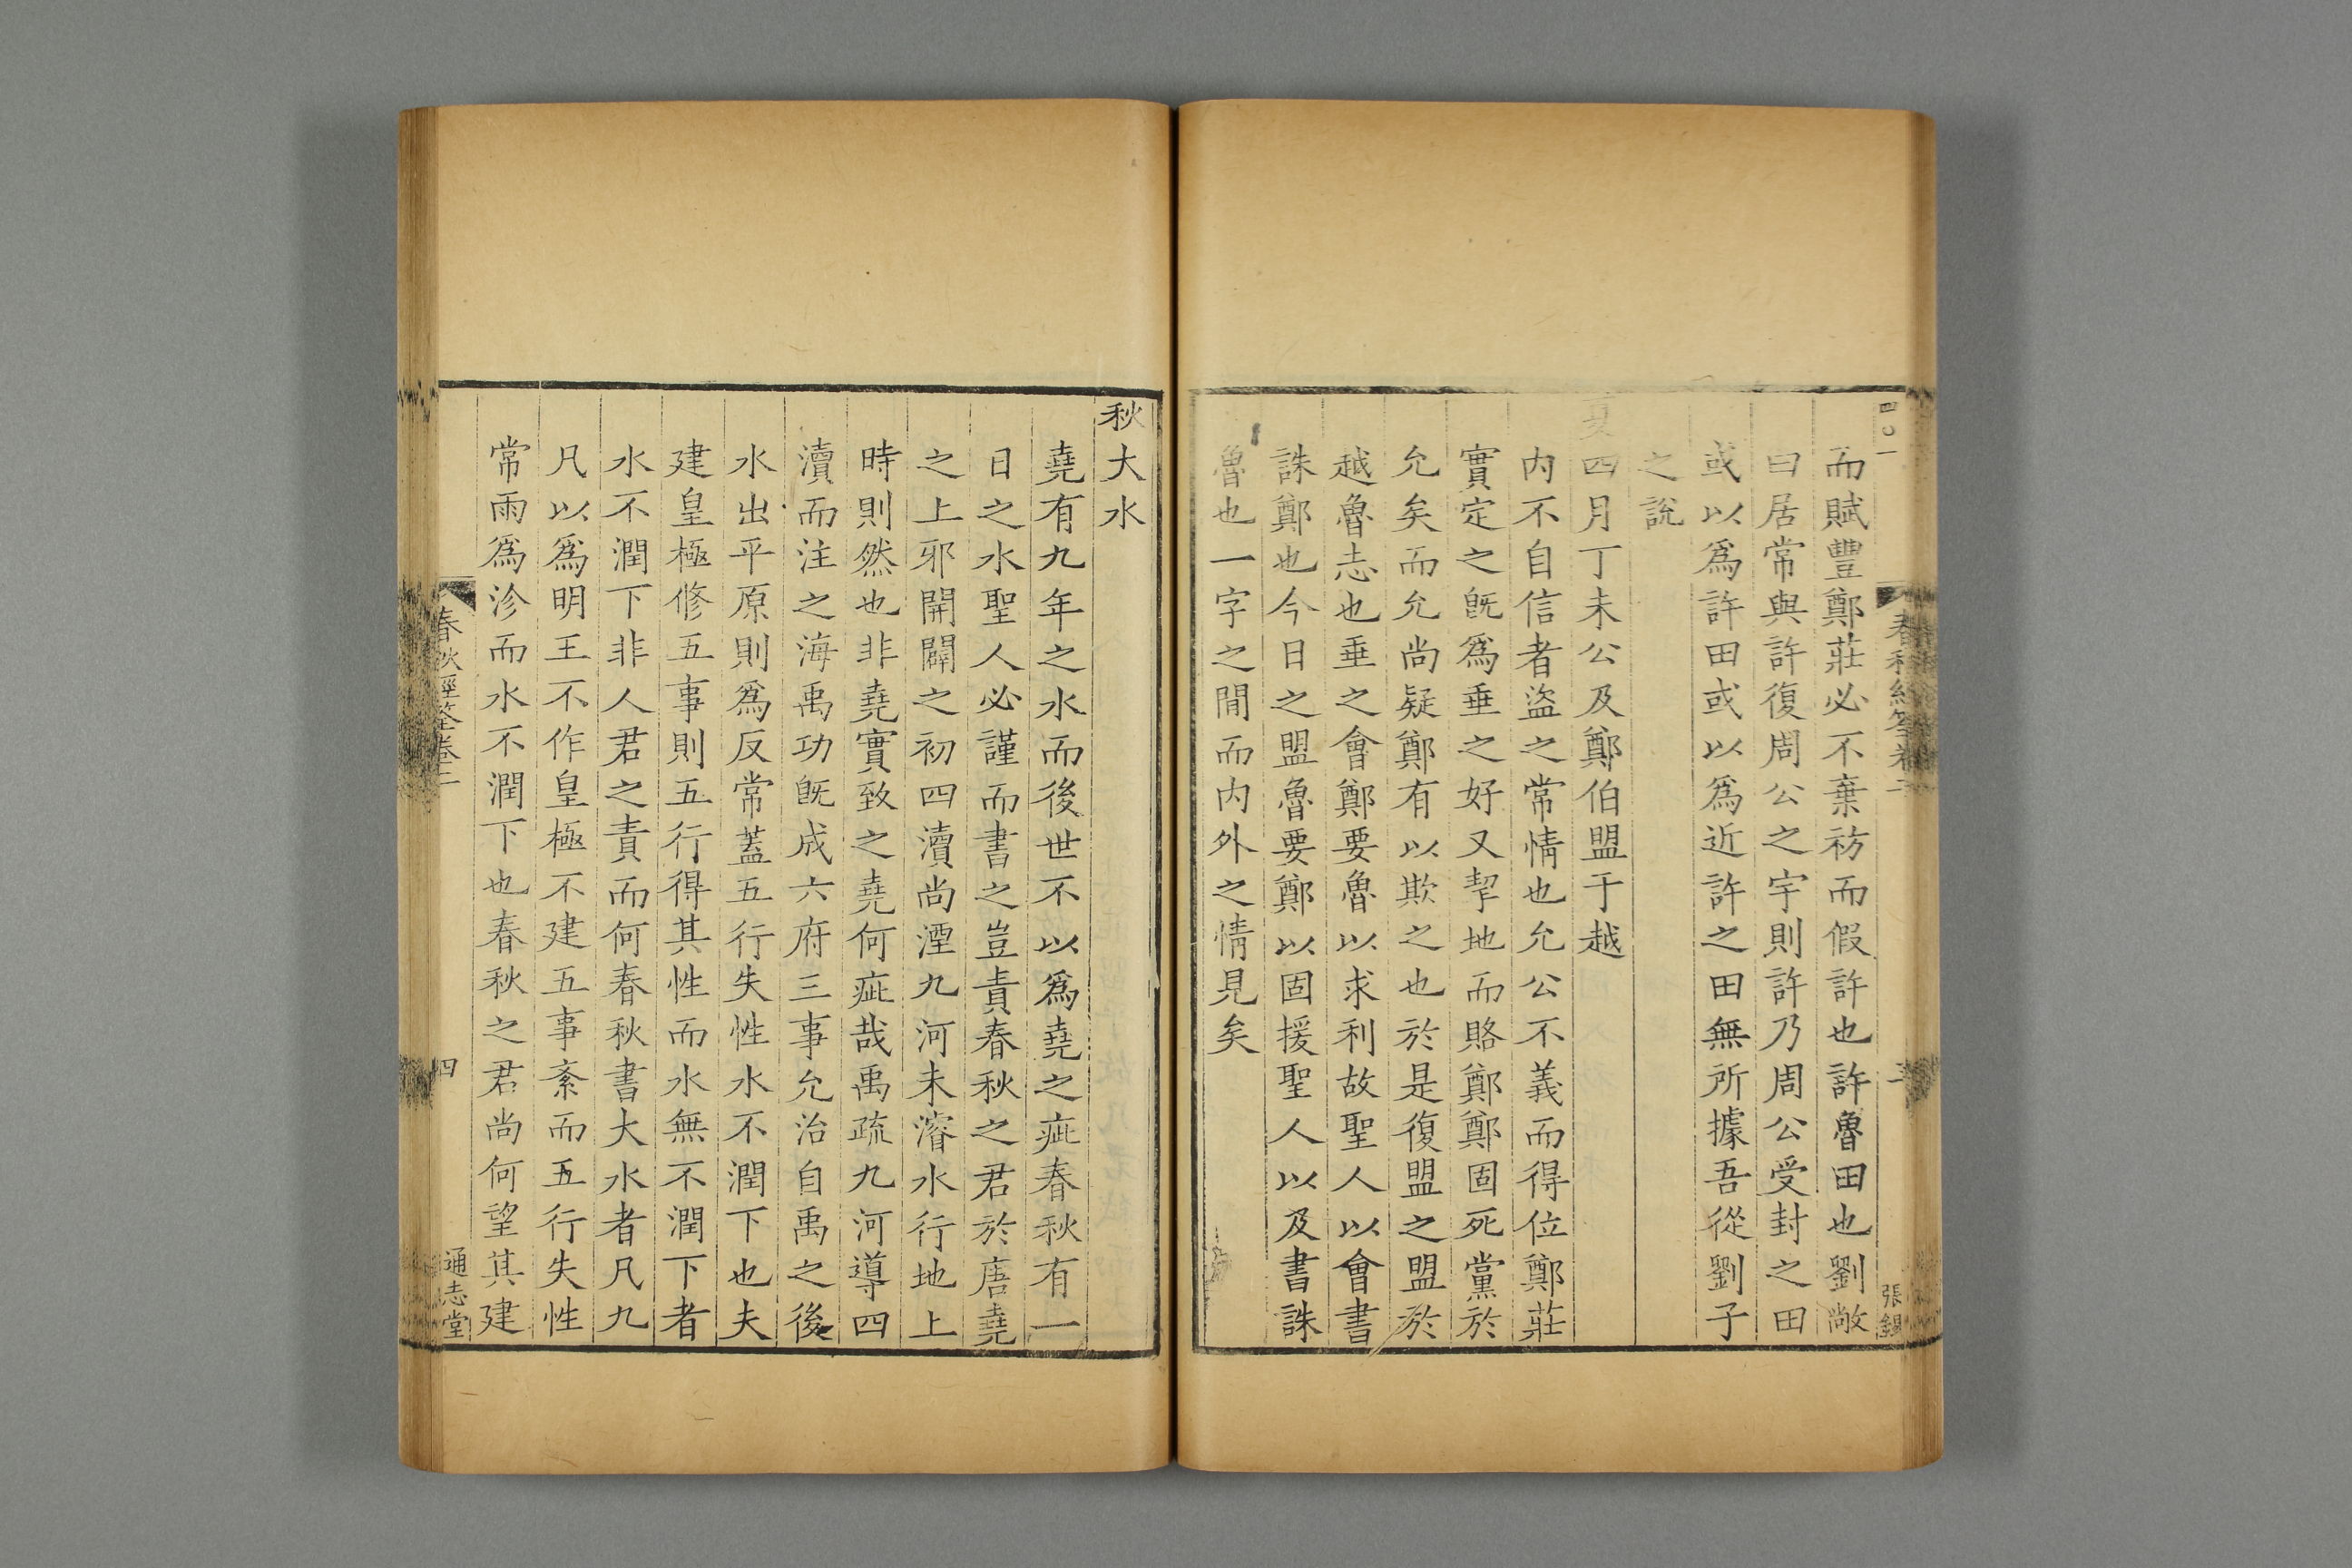 而賦豐鄭莊必不棄祊而假許也許魯田也劉敞
曰居常與許復周公之宇則許乃周公受封之田
或以爲許田或以爲近許之田無所據吾從劉子
之說
夏四月丁未公及鄭伯盟于越
内不自信者盜之常情也允公不義而得位鄭莊
實定之旣爲垂之好又挈地而賂鄭鄭固死黨於
允矣而允尚疑鄭有以欺之也於是復盟之盟於
越魯志也垂之會鄭要魯以求利故聖人以會書
誅鄭也今日之盟魯要鄭以固援聖人以及書誅
魯也一字之間而内外之情見矣
秋大水
堯有九年之水而後世不以爲堯之疵春秋有一
日之水聖人必謹而書之豈責春秋之君於唐堯
之上邪開闢之初四瀆尚湮九河未濬水行地上
時則然也非堯實致之堯何疵哉禹疏九河導四
瀆而注之海禹功旣成六府三事允治自禹之後
水出平原則爲反常蓋五行失性水不潤下也夫
建皇極修五事則五行得其性而水無不潤下者
水不潤下非人君之責而何春秋書大水者凡九
凡以爲明王不作皇極不建五事紊而五行失性
常雨爲沴而水不潤下也春秋之君尚何望其建
春秋經筌卷二
四
通志堂